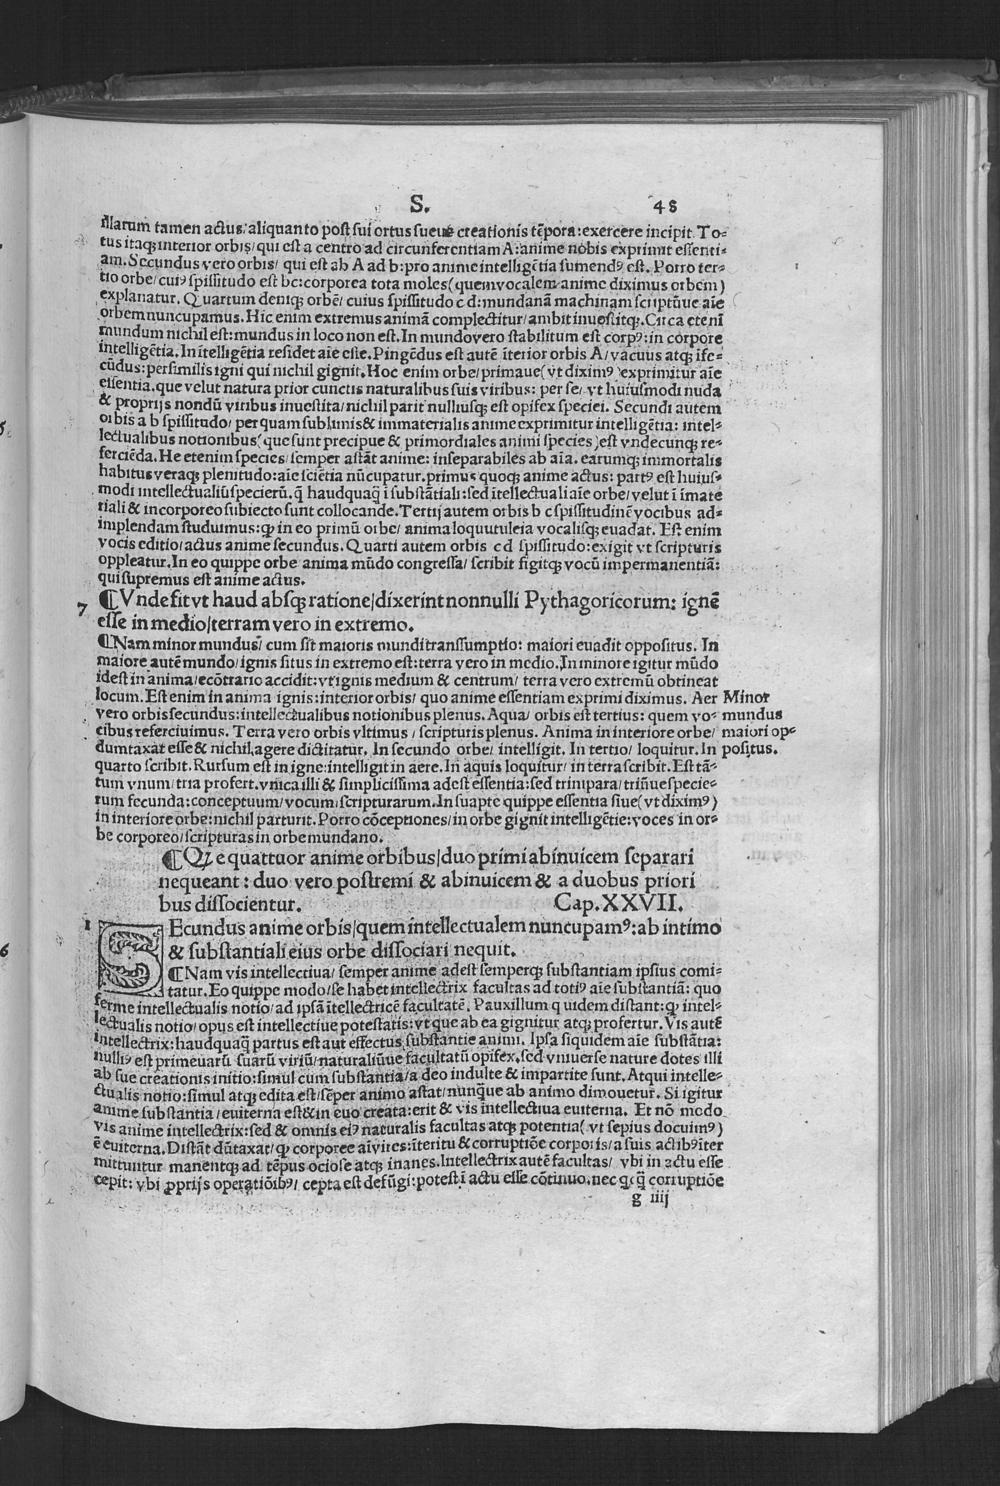 S. 48
illarum tamen actus: aliquanto post sui ortus sueue creationis tēpora: exercere incipit. To=
tus itaqȝ interior orbis/ qui est a centro ad circunferentiam A: anime nobis exprimit essenti=
am. Secundus vero orbis/ qui est ab A ad b: pro anime intelligētia sumendꝰ est. Porro ter=
tio orbe/ cuiꝰ spissitudo est bc: corporea tota moles (quem vocalem anime diximus orbem)
explanatur. Quartum deniqȝ orbē/ cuius spissitudo c d: mundanā machinam scriptūue aīe
orbem nuncupamus. Hic enim extremus animā complectitur/ ambit inuoluitqȝ. Circa etenī
mundum nichil est: mundus in loco non est. In mundo vero stabilitum est corpꝰ: in corpore
intelligētia. In ītelligētia residet aīe esse. Pingēdus est autē īterior orbis A/ vacuus atqȝ īfe=
cūdus: persimilis igni qui nichil gignit. Hoc enim orbe/ primaue (vt diximꝰ) exprimitur aīe
essentia. que velut natura prior cunctis naturalibus suis viribus: per se/ vt huiusmodi nuda
& proprijs nondū viribus inuestita/ nichil parit nulliusqȝ est opifex speciei. Secundi autem
orbis a b spissitudo/ per quam sublimis & immaterialis anime exprimitur intelligētia: intel=
lectualibus notionibus (que sunt precipue & primordiales animi species) est vndecunqȝ re=
ferciēda. He etenim species/ semper astāt anime: inseparabiles ab aīa. earumqȝ immortalis
habitus veraqȝ plenitudo: aīe sciētia nūcupatur. primus quoqȝ anime actus: partꝰ est huius=
modi intellectualiū specierū. q̄ haudquaq̄ ī substātiali: sed ītellectuali aīe orbe/ velut ī īmate
riali & incorporeo subiecto sunt collocande. Tertij autem orbis b c spissitudinē vocibus ad=
implendam studuimus: ꝙ in eo primū orbe/ anima loquutuleia vocalisqȝ euadat. Est enim
vocis editio/ actus anime secundus. Quarti autem orbis c d spissitudo: exigit vt scripturis
oppleatur. In eo quippe orbe anima mūdo congressa/ scribit figitqȝ vocū impermanentiā:
qui supremus est anime actus.
7 ¶ Vnde fit vt haud absqȝ ratione/ dixerint nonnulli Pythagoricorum: ignē
esse in medio/ terram vero in extremo.
¶ Nam minor mundus/ cum sit maioris mundi transsumptio: maiori euadit oppositus. In
maiore autē mundo/ ignis situs in extremo est: terra vero in medio. In minore igitur mūdo
idest in anima/ ecōtrario accidit: vt ignis medium & centrum/ terra vero extremū obtineat
locum. Est enim in anima ignis: interior orbis/ quo anime essentiam exprimi diximus. Aer
vero orbis secundus: intellectualibus notionibus plenus. Aqua/ orbis est tertius: quem vo=
cibus referciuimus. Terra vero orbis vltimus/ scripturis plenus. Anima in interiore orbe/
dumtaxat esse & nichil agere dictitatur. In secundo orbe/ intelligit. In tertio/ loquitur. In
Minor
mundus
maiori op=
positus.
quarto scribit. Rursum est in igne: intelligit in aere. In aquis loquitur/ in terra scribit. Est tā=
tum vnum/ tria profert. vnica illi & simplicissima adest essentia: sed trinipara/ trinūe specie=
rum fecunda: conceptuum/ vocum/ scripturarum. In suapte quippe essentia siue (vt diximꝰ)
in interiore orbe: nichil parturit. Porro cōceptiones/ in orbe gignit intelligētie: voces in or=
be corporeo/ scripturas in orbe mundano.
¶ Q̄ e quattuor anime orbibus/ duo primi abinuicem separari
nequeant: duo vero postremi & abinuicem & a duobus priori
bus dissocientur. Cap. XXVII.
1 SEcundus anime orbis/ quem intellectualem nuncupamꝰ: ab intimo
& substantiali eius orbe dissociari nequit.
¶ Nam vis intellectiua/ semper anime adest semperqȝ substantiam ipsius comi=
tatur. Eo quippe modo/ se habet intellectrix facultas ad totiꝰ aīe substantiā: quo
ferme intellectualis notio/ ad ipsā ītellectricē facultatē. Pauxillum quidem distant: ꝙ intel=
lectualis notio/ opus est intellectiue potestatis: vt que ab ea gignitur atqȝ profertur. Vis autē
intellectrix: haudquaq̄ partus est aut effectus substantie animi. Ipsa siquidem aīe substātia:
nulliꝰ est primeuarū suarū viriū/ naturaliūue facultatū opifex. sed vniuerse nature dotes illi
ab sue creationis initio: simul cum substantia/ a deo indulte & impartite sunt. Atqui intelle=
ctualis notio: simul atqȝ edita est/ sēper animo astat/ nunq̄ue ab animo dimouetur. Si igitur
anime substantia/ euiterna est & in euo creata: erit & vis intellectiua euiterna. Et nō modo
vis anime intellectrix: sed & omnis eiꝰ naturalis facultas atqȝ potentia (vt sepius docuimꝰ)
ē euiterna. Distāt dūtaxat/ ꝙ corporee aī vires: īteritu & corruptiōe corporis/ a suis actibꝰ īter
mittuntur manentqȝ ad tēpus ociose atqȝ inanes. Intellectrix autē facultas/ vbi in actu esse
cepit: vbi ꝓprijs operatiōibꝰ/ cepta est defūgi: potest ī actu esse cōtinuo. nec qcq̄ corruptiōe
g iiij